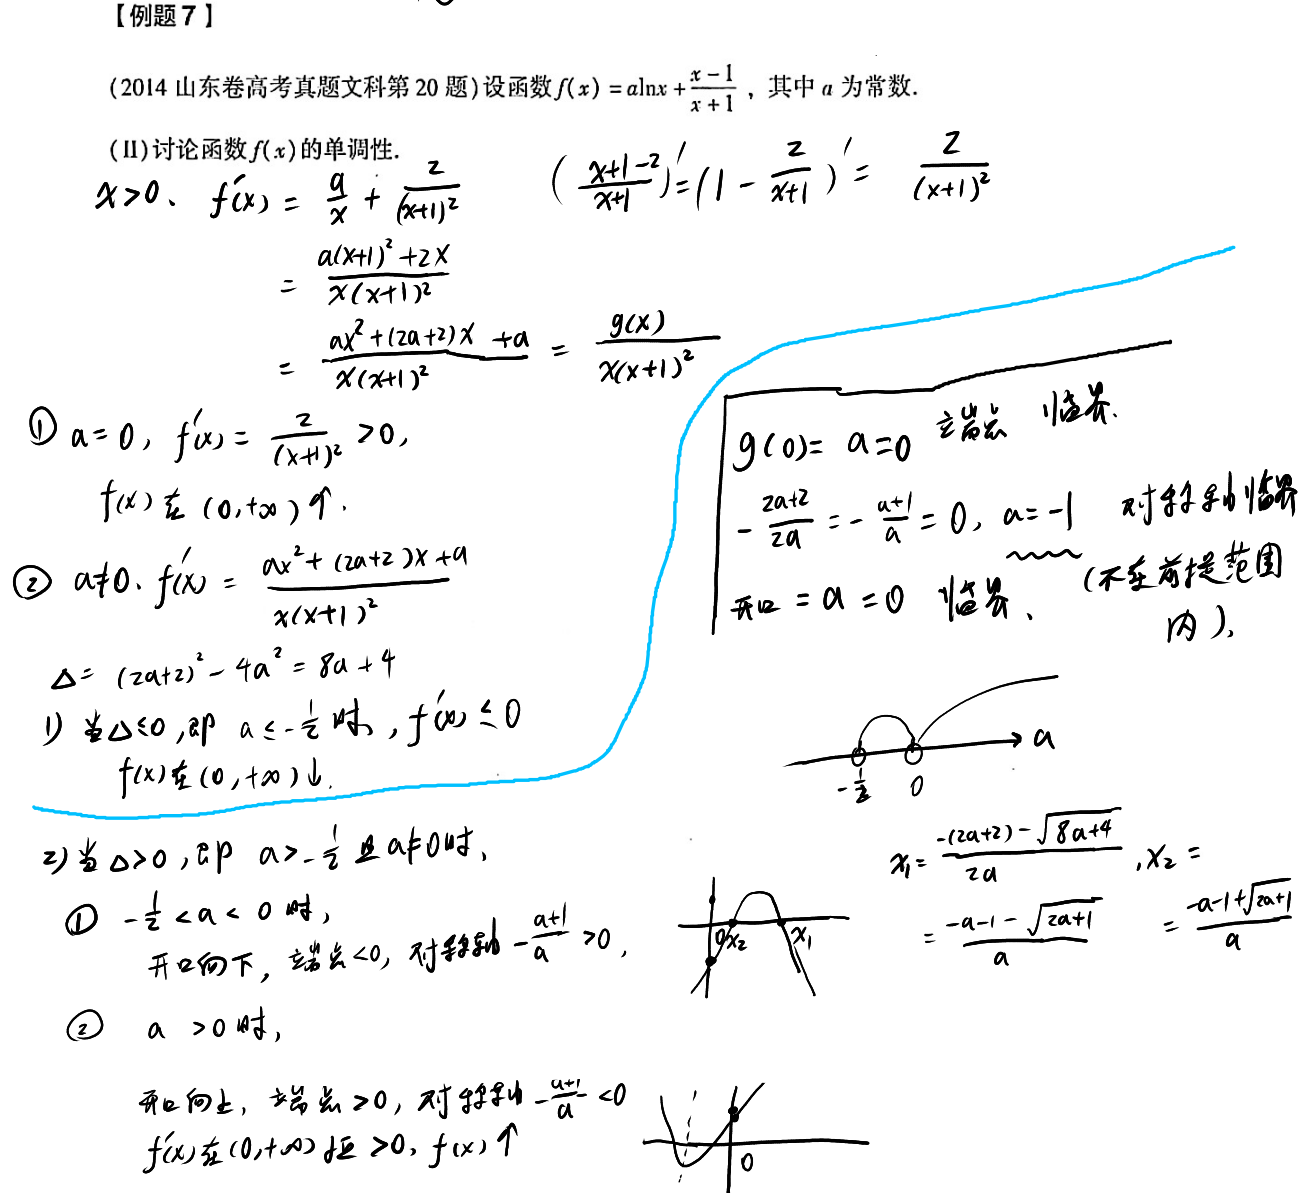 【例题7】
(2014 山东卷高考真题文科第 20 题)设函数 f(x) = alnx + (x-1)/(x+1) ，其中 a 为常数.
(Ⅱ)讨论函数 f(x) 的单调性.
x>0、 f'(x) = a/x + 2/(x+1)²
((x+1-2)/(x+1))' = (1 - 2/(x+1))' = 2/(x+1)²
= (a(x+1)²+2x)/(x(x+1)²)
= (ax²+(2a+2)x+a)/(x(x+1)²) = g(x)/(x(x+1)²)
① a=0, f'(x) = 2/(x+1)² >0,
f(x) 在 (0,+∞)↑.
② a≠0、f'(x) = (ax²+(2a+2)x+a)/(x(x+1)²)
Δ= (2a+2)²-4a² = 8a+4
1) 当Δ≤0,即 a≤-1/2 时, f'(x)≤0
f(x)在(0,+∞)↓.
g(0)= a=0 端点 临界.
-(2a+2)/2a = -(a+1)/a = 0, a=-1 对称轴临界
(不在前提范围
内).
开口 = a = 0 临界、
a
-1/2 0
2) 当Δ>0,即 a>-1/2 且a≠0时,
① -1/2<a<0 时,
开口向下, 端点<0, 对称轴 -(a+1)/a >0,
0 x₂ x₁
x₁= (-(2a+2)-√(8a+4))/2a , x₂ =
= (-a-1-√(2a+1))/a = (-a-1+√(2a+1))/a
② a >0 时,
开口向上, 端点>0, 对称轴 -(a+1)/a <0
f'(x)在(0,+∞)恒>0, f(x)↑
0